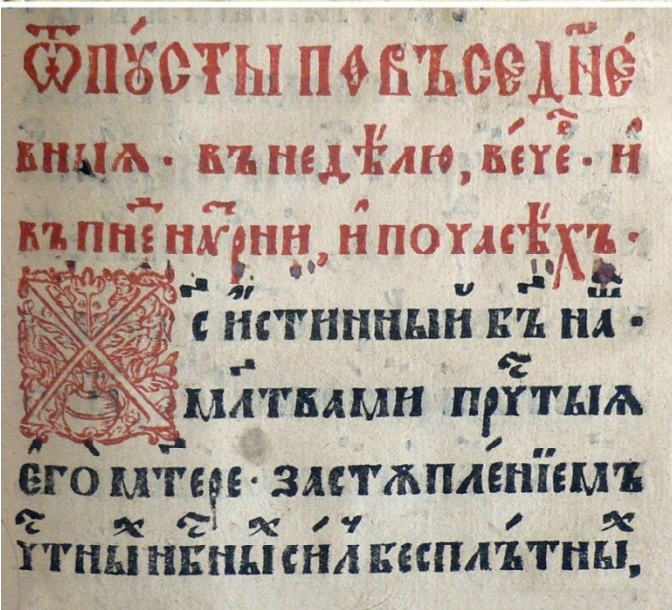 Ѿпꙋ́сты повъседн҃е́
вныѧ · въ недѣ́лю, ве́чеⷬ҇ · и҆
въ пнⷣе наѵⷬ҇рни, и҆ по часѣ́хъ ·
Х҇с и҆́стинный бг҃ъ наⷲ ·
мл҃твами прⷭ҇чтыѧ
є҆го̀ мт҃ере · застѫпле́нїемъ
чⷭ҇тныⷯ нбⷭ҇ныⷯ си́лъ беспль́тныⷯ,